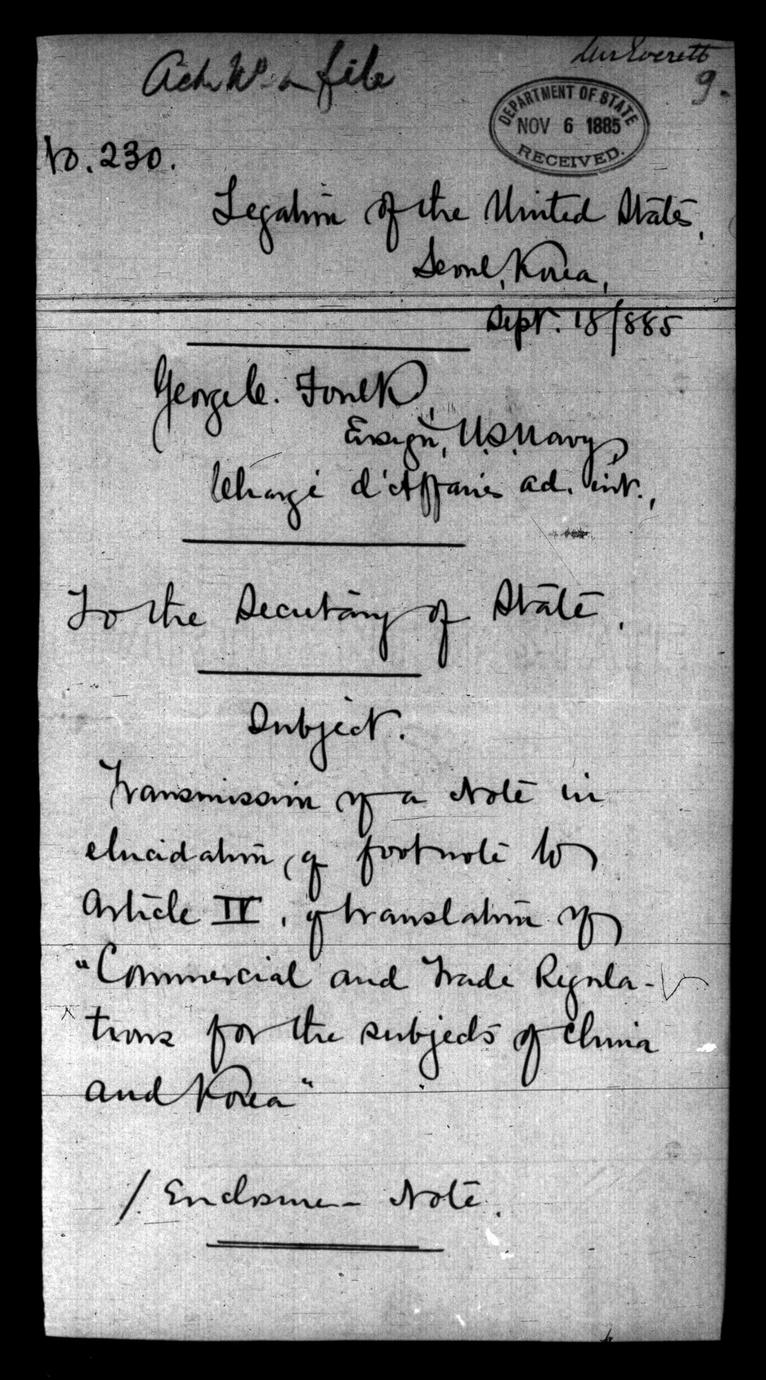 Mr Everett
file
9.
DEPARTMENT OF STATE
NOV 6 1885
RECEIVED.
No. 230.
Legation of the United States,
Seoul, Korea,
Sept. 18/885
George C. Foulk,
Ensign, U.S. Navy,
Chargé d'Affaires ad. int.,
To the Secretary of State.
Subject.
Transmission of a Note in
elucidation, of footnote to
Article IV, of translation of
"Commercial and Trade Regula-
tions for the subjects of China
and Korea"
1 Enclosure – Note.